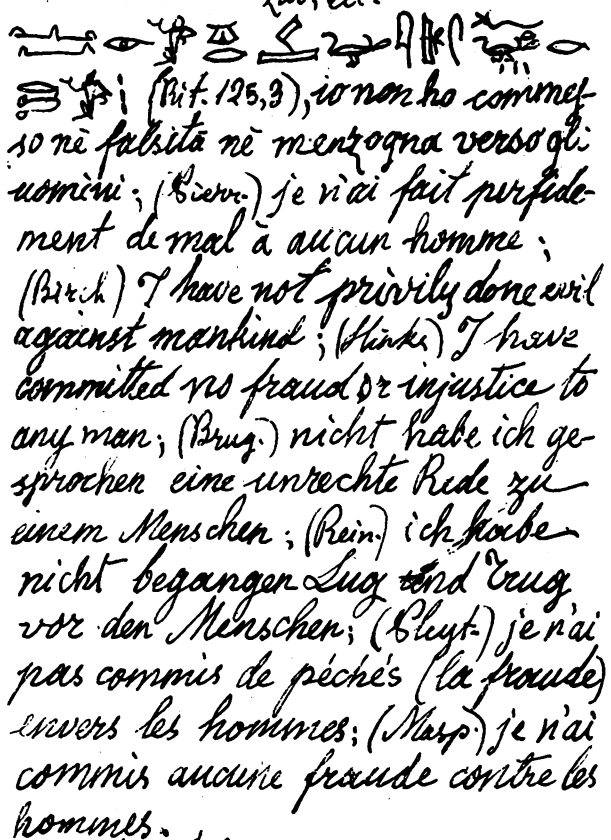 (Rit. 125,3), io non ho commes-
so nè falsità nè menzogna verso gli
uomini; (Pierr.) je n'ai fait perfide-
ment de mal à aucun homme;
(Birch) I have not privily done evil
against mankind; (Hinks) I have
committed no fraud or injustice to
any man; (Brug.) nicht habe ich ge-
sprochen eine unrechte Rede zu
einem Menschen; (Rein.) ich habe
nicht begangen Lug und Trug
vor den Menschen; (Pleyt.) je n'ai
pas commis de péchés (la fraude)
envers les hommes; (Masp.) je n'ai
commis aucune fraude contre les
hommes.